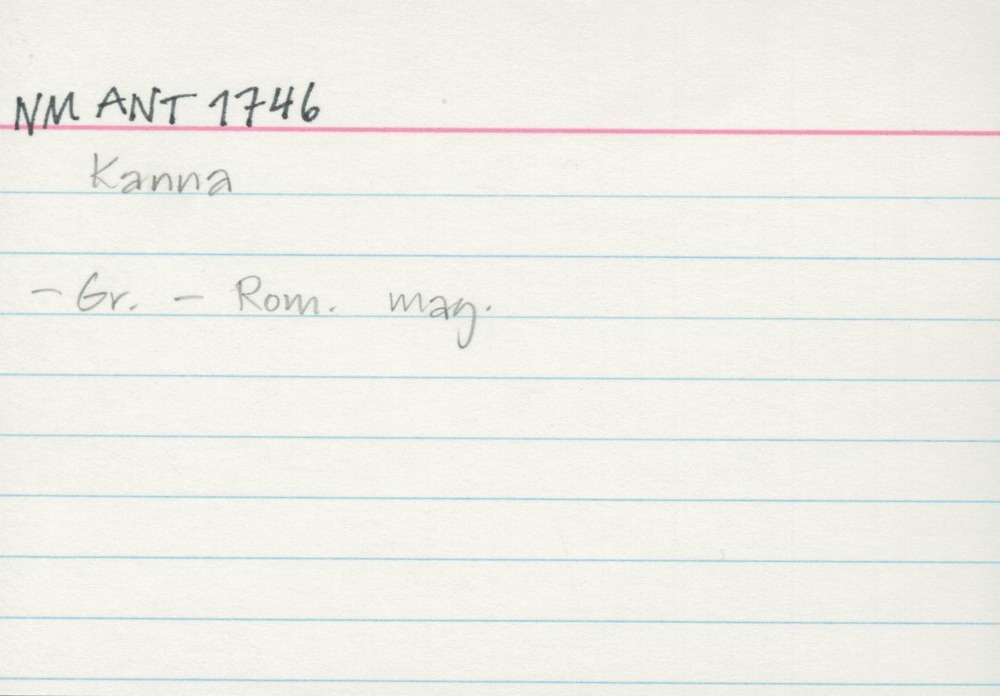 NM ANT 1746
Kanna
- Gr. - Rom. mag.